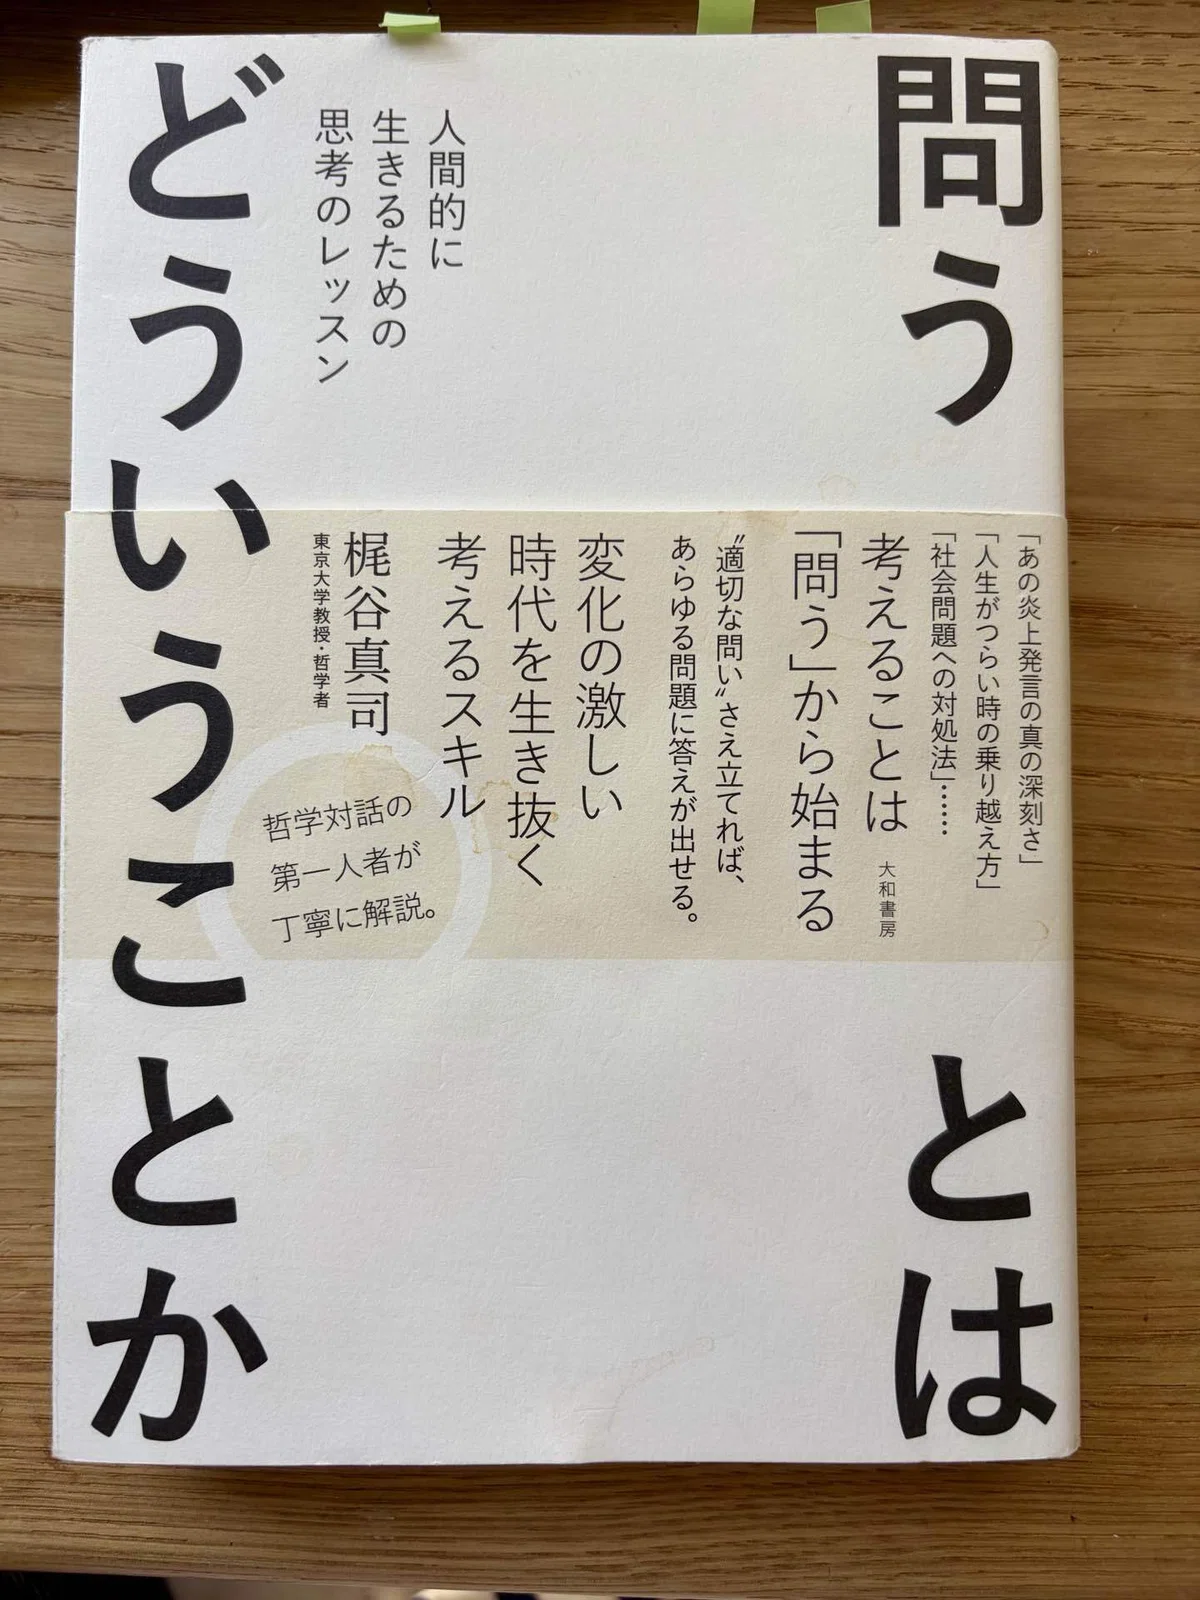 問うとは
どういうことか
人間的に
生きるための
思考のレッスン
「あの炎上発言の真の深刻さ」
「人生がつらい時の乗り越え方」
「社会問題への対処法」……
考えることは
「問う」から始まる
大和書房
〝適切な問い〟さえ立てれば、
あらゆる問題に答えが出せる。
変化の激しい
時代を生き抜く
考えるスキル
梶谷真司
東京大学教授・哲学者
哲学対話の
第一人者が
丁寧に解説。